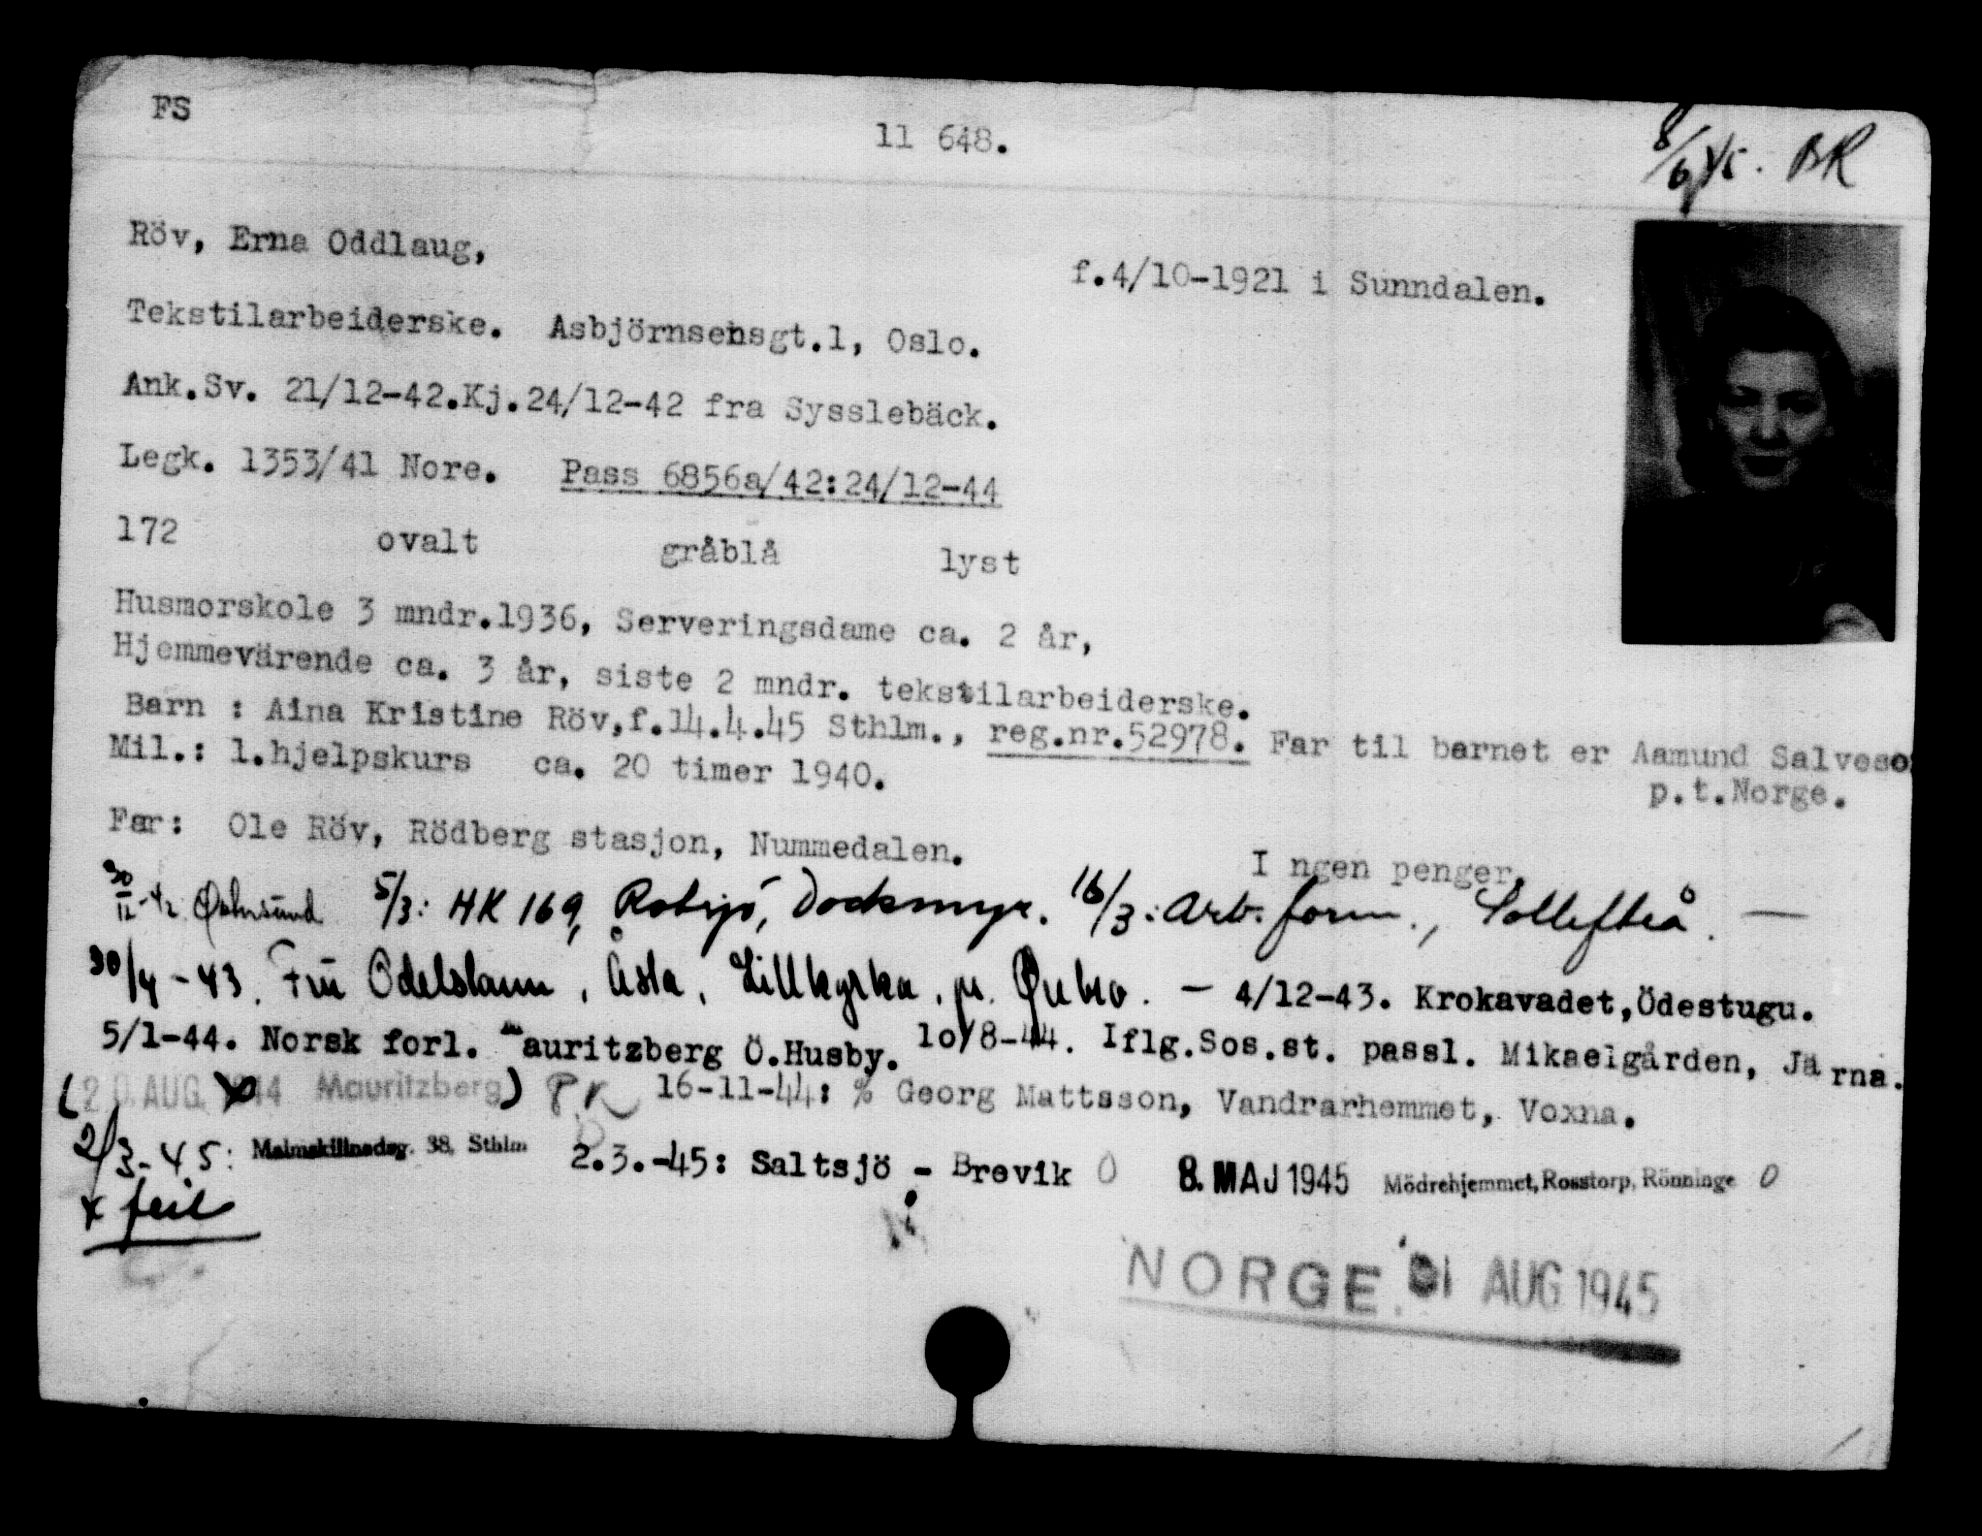 FS
11 648.
8/6 45. BR
Röv, Erna Oddlaug,
f.4/10-1921 i Sunndalen.
Tekstilarbeiderske. Asbjörnsensgt.1, Oslo.
Ank.Sv. 21/12-42.Kj.24/12-42 fra Sysslebäck.
Legk. 1353/41 Nore. Pass 6856a/42:24/12-44
172 ovalt gråblå lyst
Husmorskole 3 mndr.1936, Serveringsdame ca. 2 år,
Hjemmevärende ca. 3 år, siste 2 mndr. tekstilarbeiderske.
Barn : Aina Kristine Röv,f.14.4.45 Sthlm., reg.nr.52978. Far til barnet er Aamund Salveso
p.t.Norge.
Mil.: 1.hjelpskurs ca. 20 timer 1940.
Far: Ole Röv, Rödberg stasjon, Nummedalen.
I ngen penger.
30/12-42 5/3: HK 169, Dockmyr. 16/3: Arb. form., Sollefteå. —
30/4-43. Fru Åsla, Lillkyrka, pr. Ørebro. - 4/12-43. Krokavadet,Ödestugu.
5/1-44. Norsk forl. Mauritzberg Ö.Husby. 10/8-44. Iflg.Sos.st. passl. Mikaelgården, Järna.
(20. AUG. 1944 Mauritzberg) P.K 16-11-44: % Georg Mattsson, Vandrarhemmet, Voxna.
2/3-45: Malmskillnadsg. 38, Sthlm 2.3.-45: Saltsjö - Brevik 0 8. MAJ 1945 Mödrehjemmet, Rosstorp, Rönninge 0
x feil
NORGE. AUG 1945